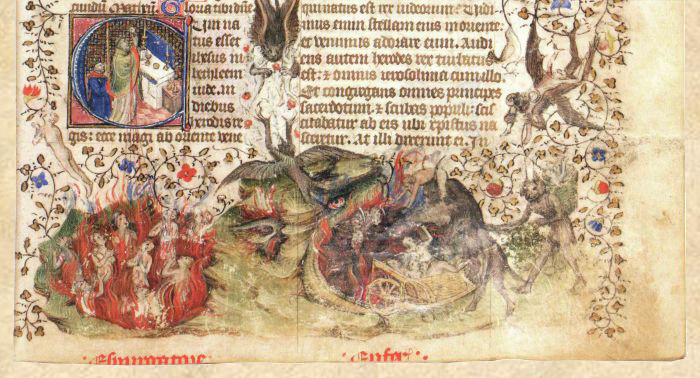 cundū Matheū Gloria tibi dn̄e
Cum na
tus esset
ihesus in
bethleem
iude. in
diebus
herodis re
gis: ecce magi ab oriente vene
qui natus est rex iudeorum: Vidi
mus enim stellam eius in oriente:
et venimus adorare eum. Audi
ens autem herodes rex turbatus
est: ⁊ omnis ierosolima cum illo
Et congregans omnes principes
sacerdotum ⁊ scribas populi: scis
citabatur ab eis ubi xpistus na
sceretur. At illi dixerunt ei. In